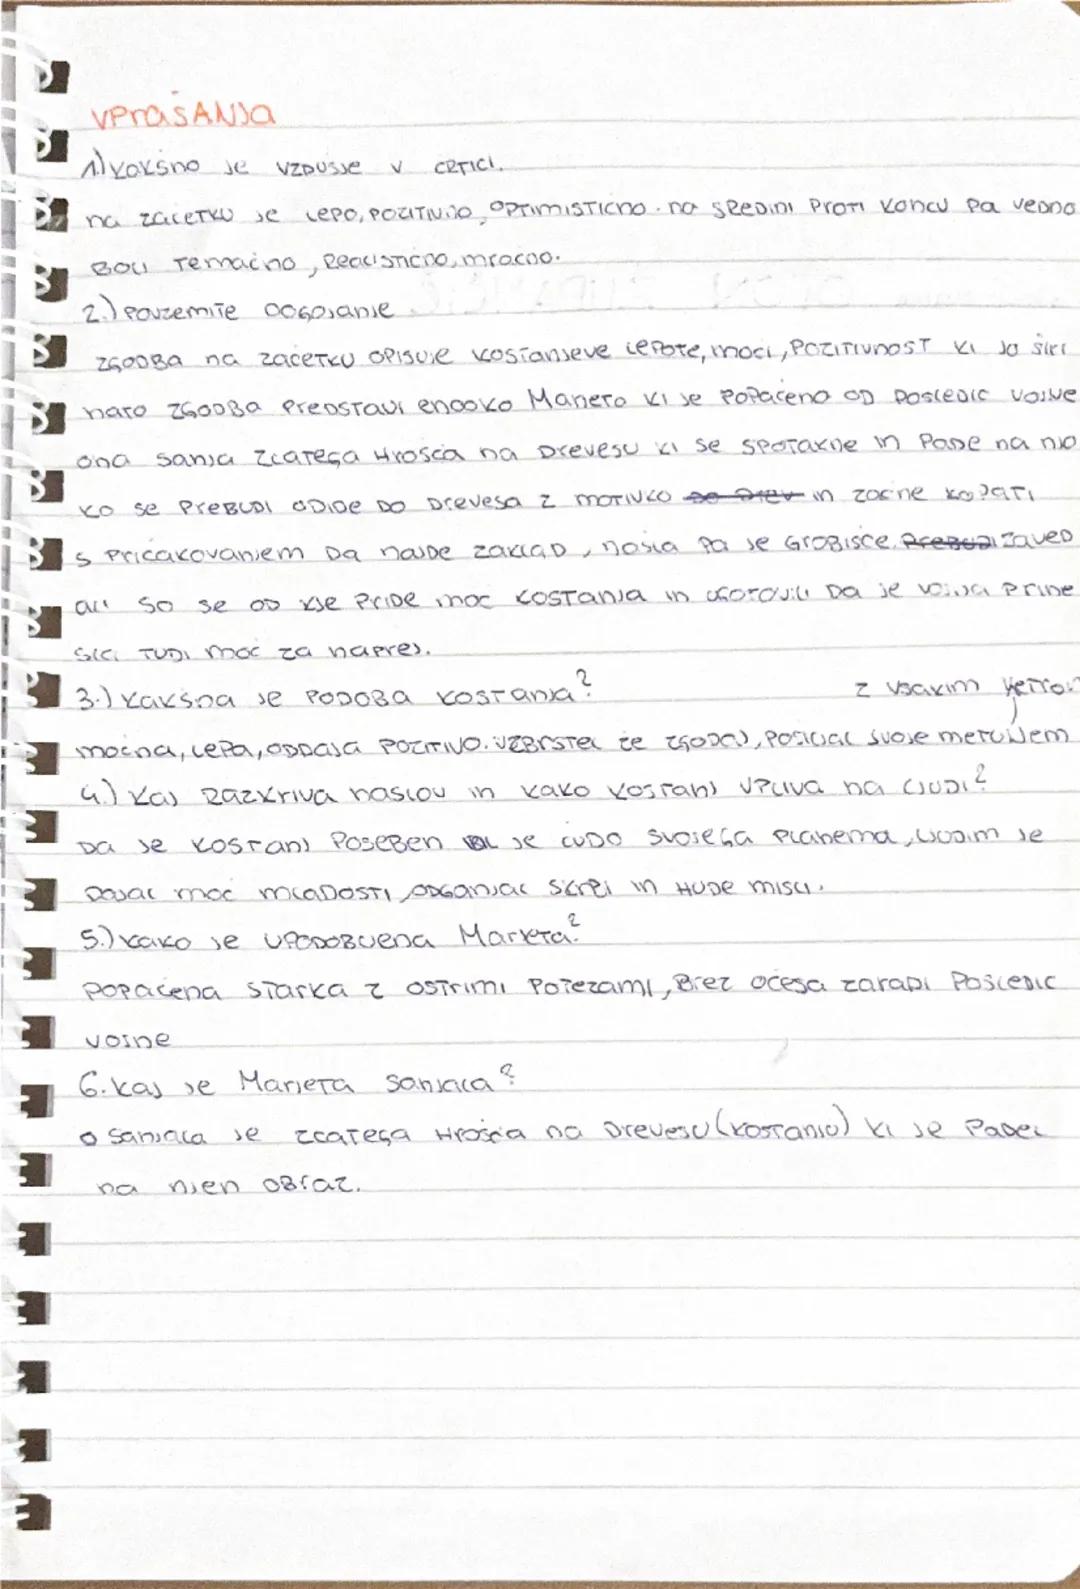 VPrašANJa
1.) kakšno je vzdušje v črtici.
na začetku je lepo, pozitivno, optimistično. na sredini proti koncu pa vedno
bolj temačno, realistično, mračno.
2.) povzemite dogajanje
zgodba na začetku opisuje kostanjeve lepote, moči, pozitivnost ki jo širi
nato zgodba predstavi enooko Marjeto ki je popačena od posledic vojne
ona sanja zlatega hrošča na drevesu ki se spotakne in pade na njo
ko se prebudi odide do drevesa z motivko in začne kopati
s pričakovanjem da najde zaklad, našla pa je grobišče. zaved
ali so se od kje pride moč kostanja in ugotovili da je vojna prine
sla tudi moč za naprej.
3.) kakšna je podoba kostanja?
z vsakim letom
močna, lepa, oddaja pozitivo. vzbrstel že zgodaj, pošiljal svoje metuljem
4.) kaj razkriva naslov in kako kostanj vpliva na ljudi?
da je kostanj poseben je čudo svojega plemena, ljudim je
dajal moč mladosti, odganjal skrbi in hude misli.
5.) kako je upodobljena Marjeta?
popačena starka z ostrimi potezami, brez očesa zaradi posledic
vojne
6. kaj je Marjeta sanjala?
o sanjala je zlatega hrošča na drevesu (kostanju) ki je padel
na njen obraz.